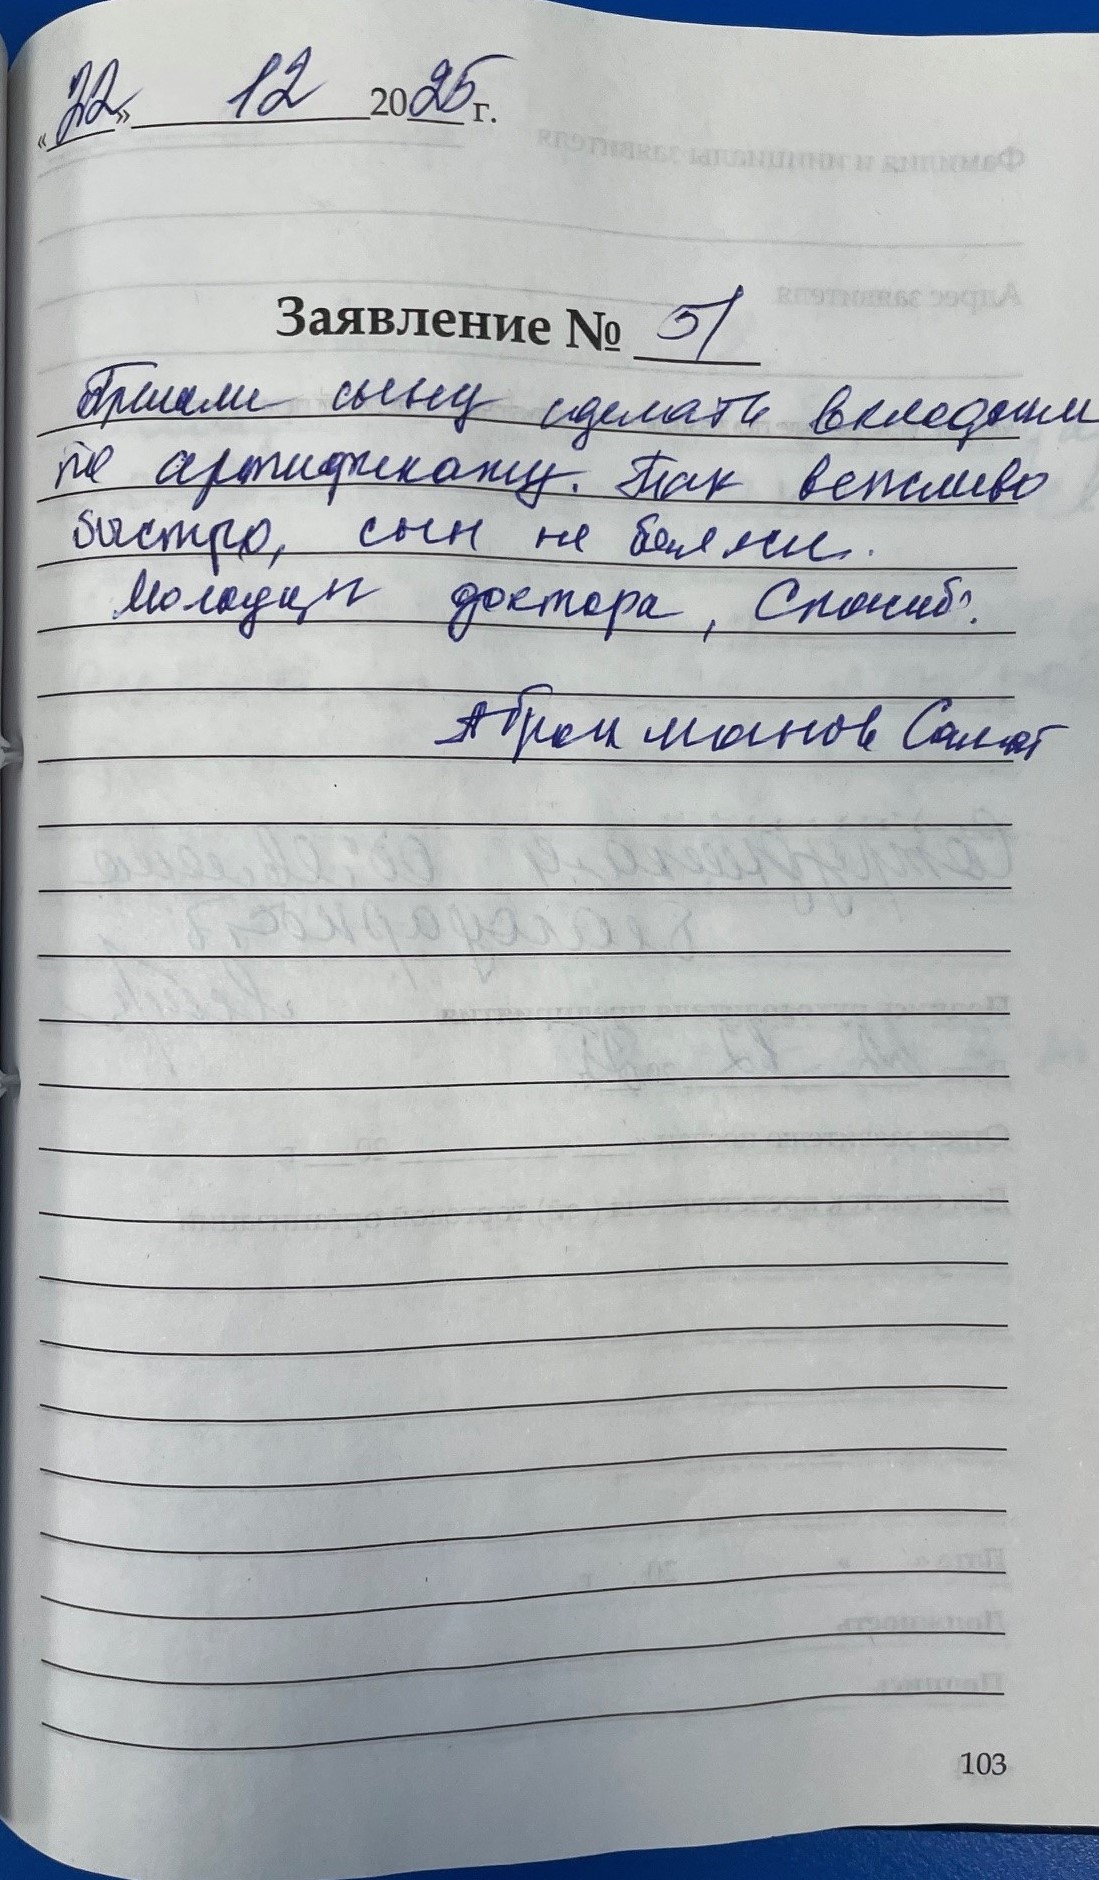 «22» 12 2025 г.
Заявление № 51
Пришли сыну сделать вкладыши
по сертификату. Так вежливо
быстро, сын не
Молодцы доктора, Спасибо.
Абрахманов Самат
103